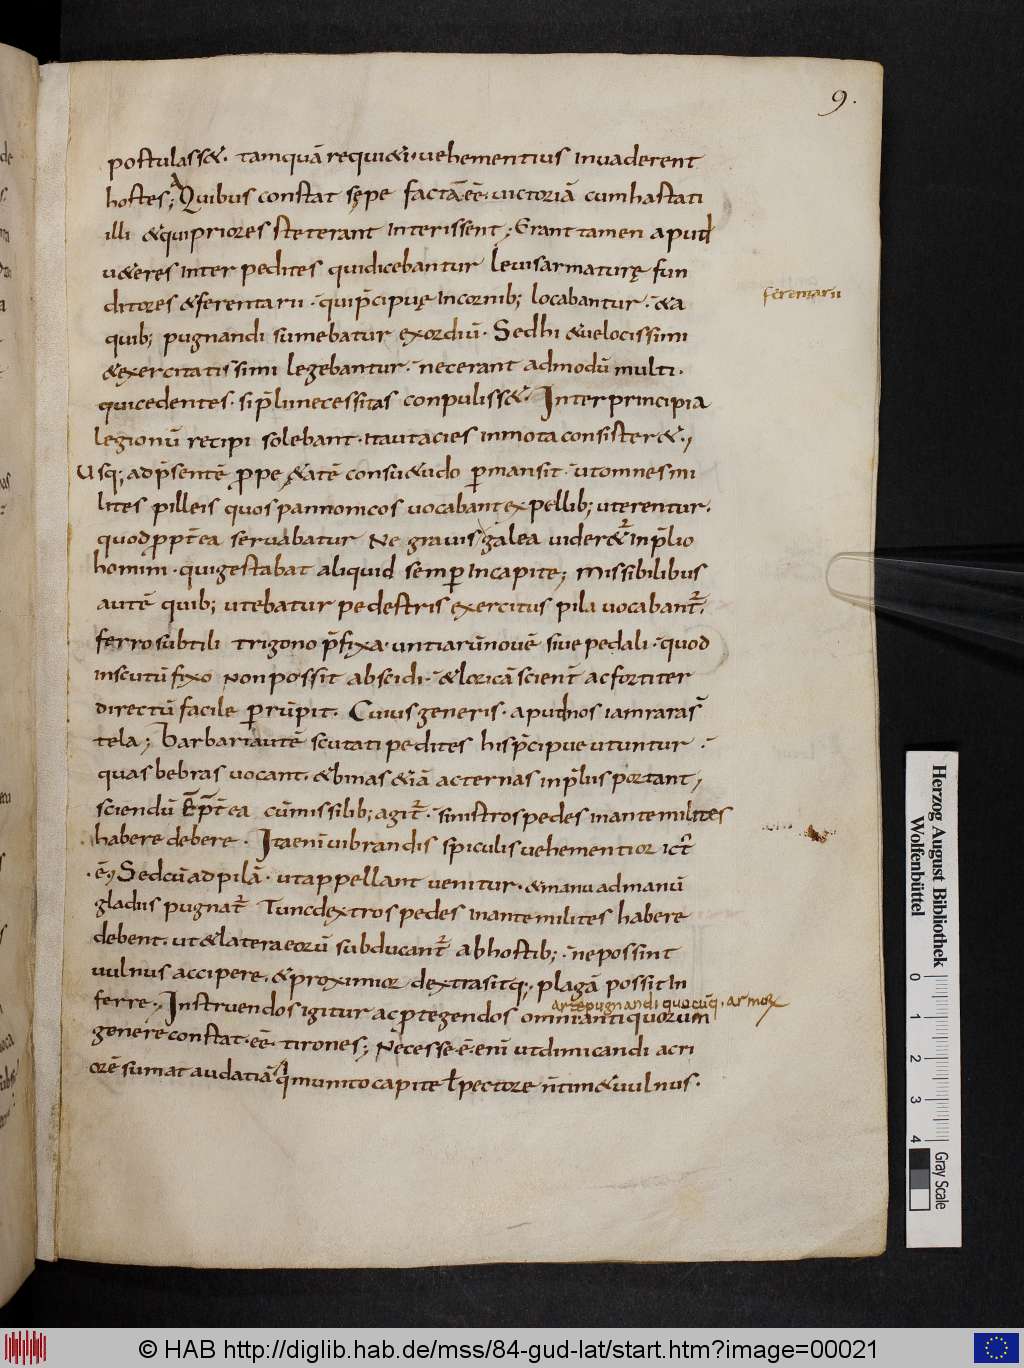 9.
postulass&. tamquā requi&i. uehementius inuaderent
hostes; Quibus constat sępe factā .eē. uictoriā cum hastati
illi & qui priores steterant interissent; Erant tamen apud
u&eres inter pedites qui dicebantur leuis armaturę fun
ditores & ferentarii. qui p̄cipuę in cornib; locabantur. & a
ferentarii
quib; pugnandi sumebatur exordiū. Sed hi & uelocissimi
& exercitatissimi legebantur. nec erant admodū multi.
qui cedentes. si p̄lii necessitas conpuliss&. Inter principia
legionū recipi solebant. ita ut acies inmota consister&.,
Usq; ad p̄sentē prope &atē consu&udo permansit. ut omnes mi
lites pilleis quos pannonicos uocabant ex pellib; uterentur.
quod propt̄ea seruabatur Ne grauis galea uider&ur in p̄lio
homini. qui gestabat aliquid semper in capite; Missibilibus
autē quib; utebatur pedestris exercitus pila uocabant̄.
ferro subtili trigono p̄fixa. untiarū nouē siue pedali. quod
in scutū fixo non possit abscidi. & loricā scient̄ ac fortiter
directū facile perrūpit. Cuius generis. apud nos iam rara s̄
tela; barbari autē scutati pedites his p̄cipue utuntur.
quas bebras uocant. & binas & iā ac ternas in p̄liis portant,
sciendū p̄t̄ea cū missilib; agit̄. sinistros pedes in ante milites
habere debere. Ita enī uibrandis spiculis uehementior ict̄
.ē, Sed cū ad pilā. ut appellant uenitur. & manu ad manū
gladiis pugnat̄ Tunc dextros pedes in ante milites habere
debent. ut & latera eorū subducant̄ ab hostib;. ne possint
uulnus accipere. & proximior dextra sit q;. plagā possit in
ferre. Instruendos igitur ac protegendos omni antiquorum
arte pugnandi quocūq. armorum
genere constat. eē. tirones; Necesse .ē. enī ut dimicandi acri
orē sumat audatiā q̄ munito capite ł pectore n̄ tim& uulnus.
Herzog August Bibliothek
Wolfenbüttel
0 1 2 3 4
Gray Scale
© HAB http://diglib.hab.de/mss/84-gud-lat/start.htm?image=00021